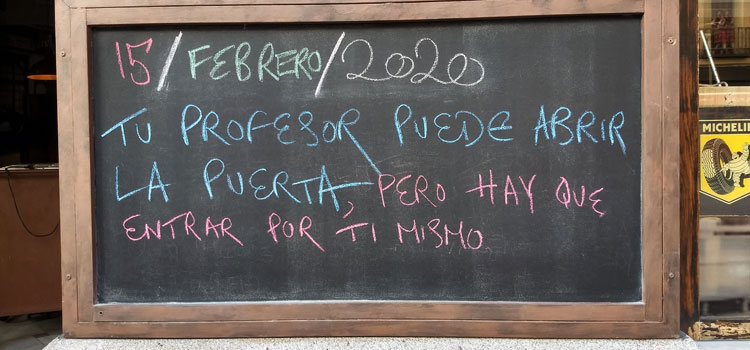 15/FEBRERO/2020
TU PROFESOR PUEDE ABRIR
LA PUERTA, PERO HAY QUE
ENTRAR POR TI MISMO.
MICHELIN